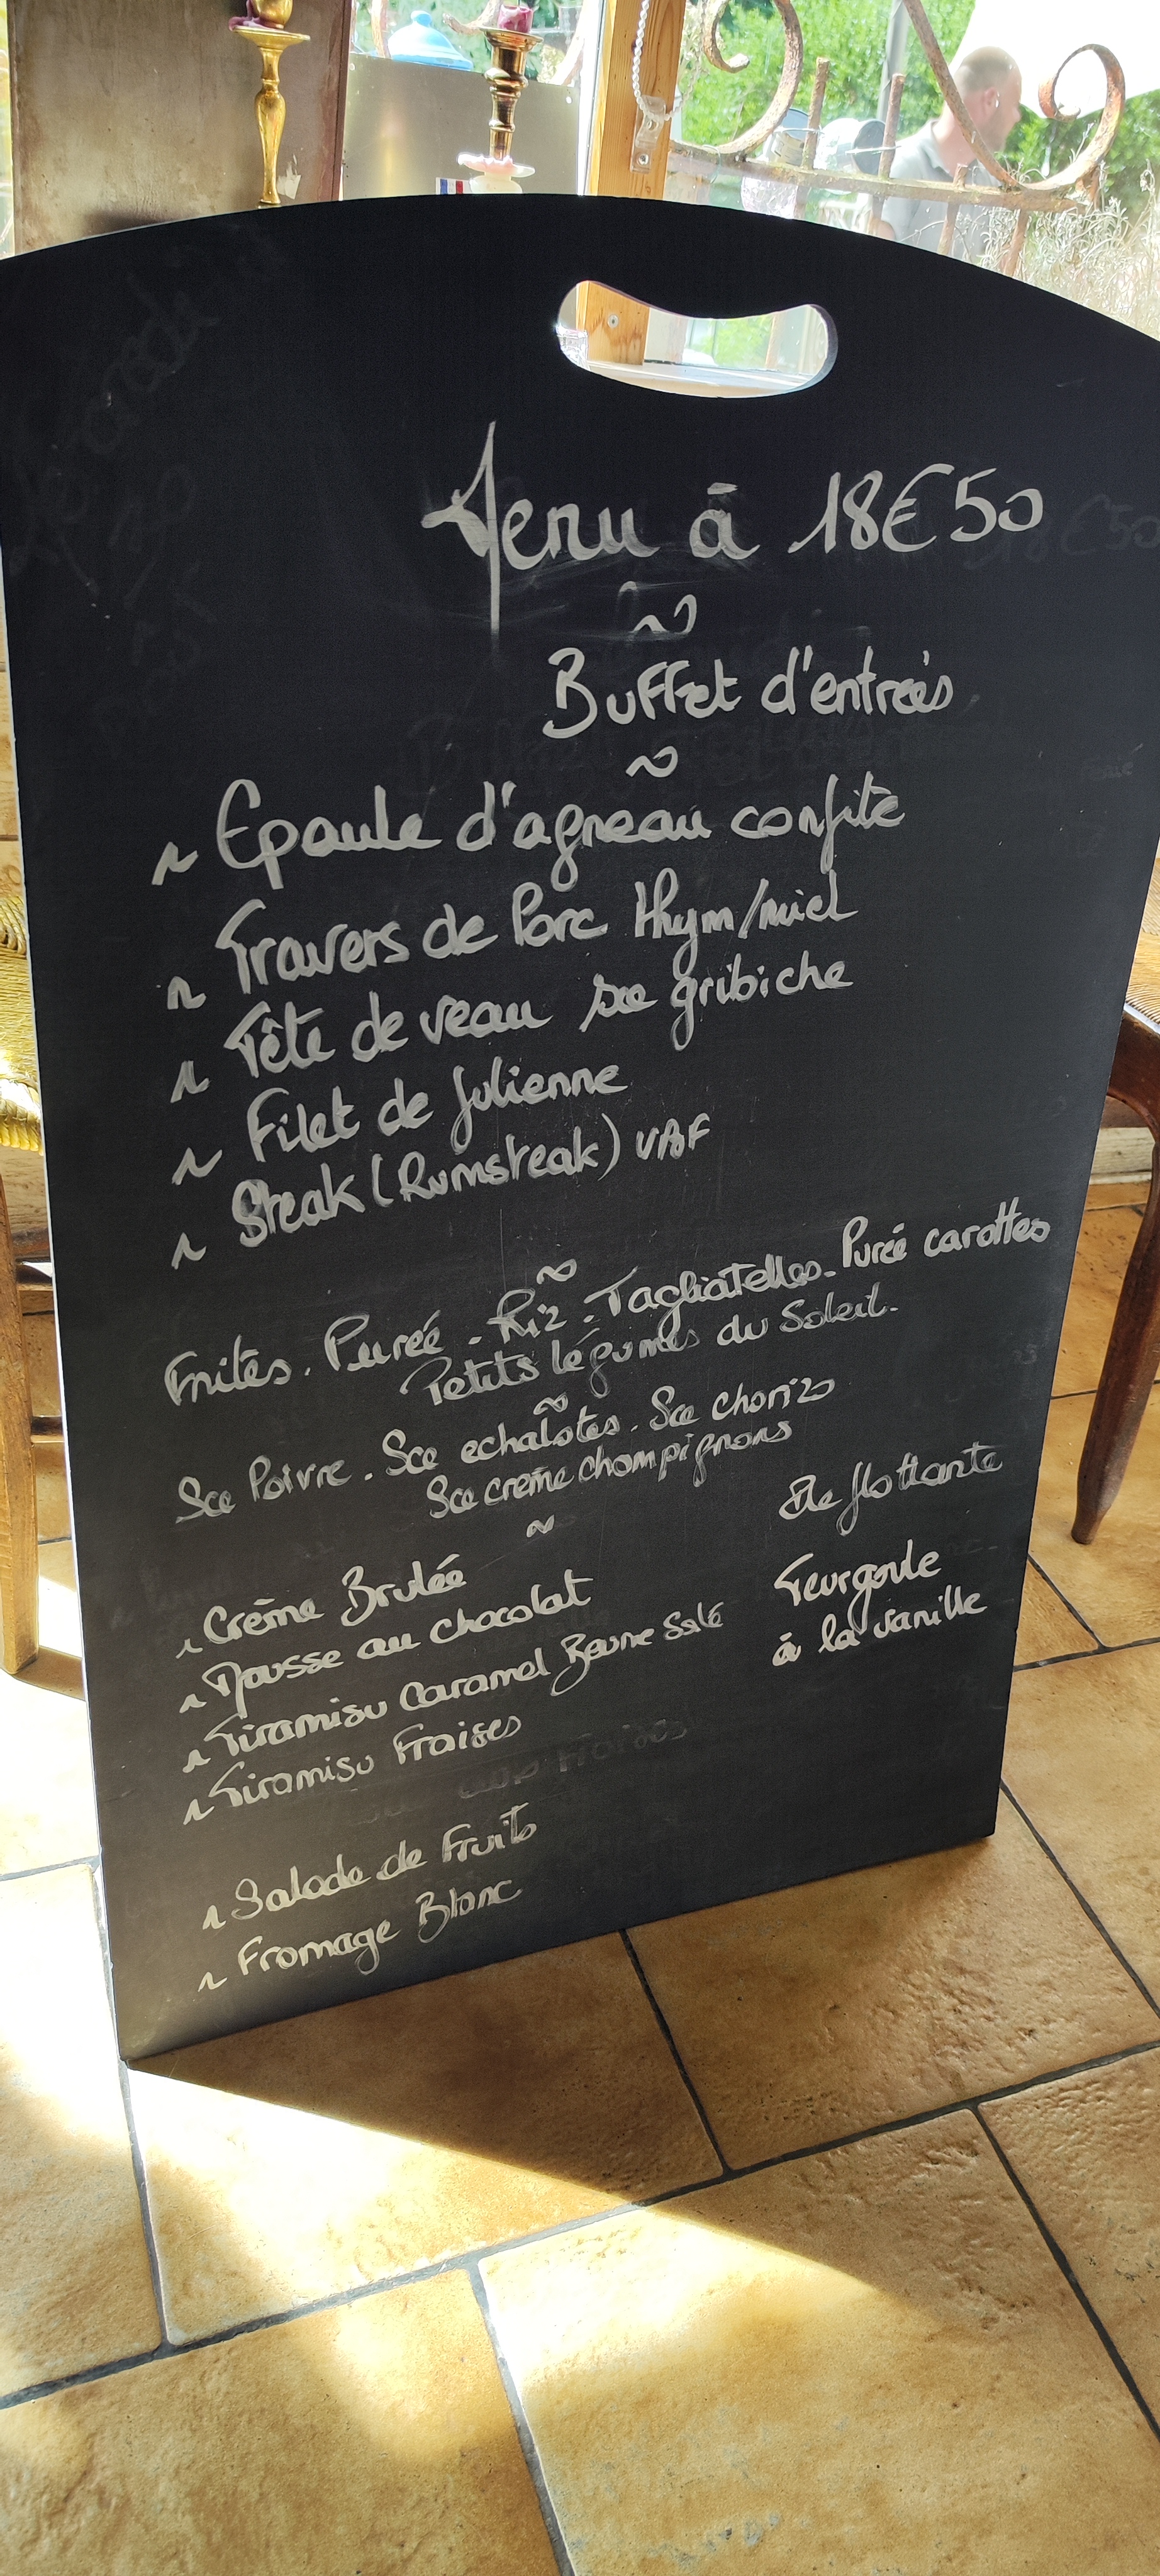 Menu à 18€50
Buffet d'entrées
Epaule d'agneau confite
Travers de Porc thym/miel
Tête de veau sce gribiche
Filet de Julienne
Steak (Rumsteak) VBF
Frites. Purée - Riz - Tagliatelles - Purée carottes
Petits légumes du Soleil.
Sce Poivre. Sce echalotes. Sce chorizo
Sce crème champignons
Crème Brulée
Mousse au chocolat
Tiramisu Caramel Beurre Salé
Tiramisu Fraises
Salade de Fruits
Fromage Blanc
Ile flottante
Teurgoule
à la vanille